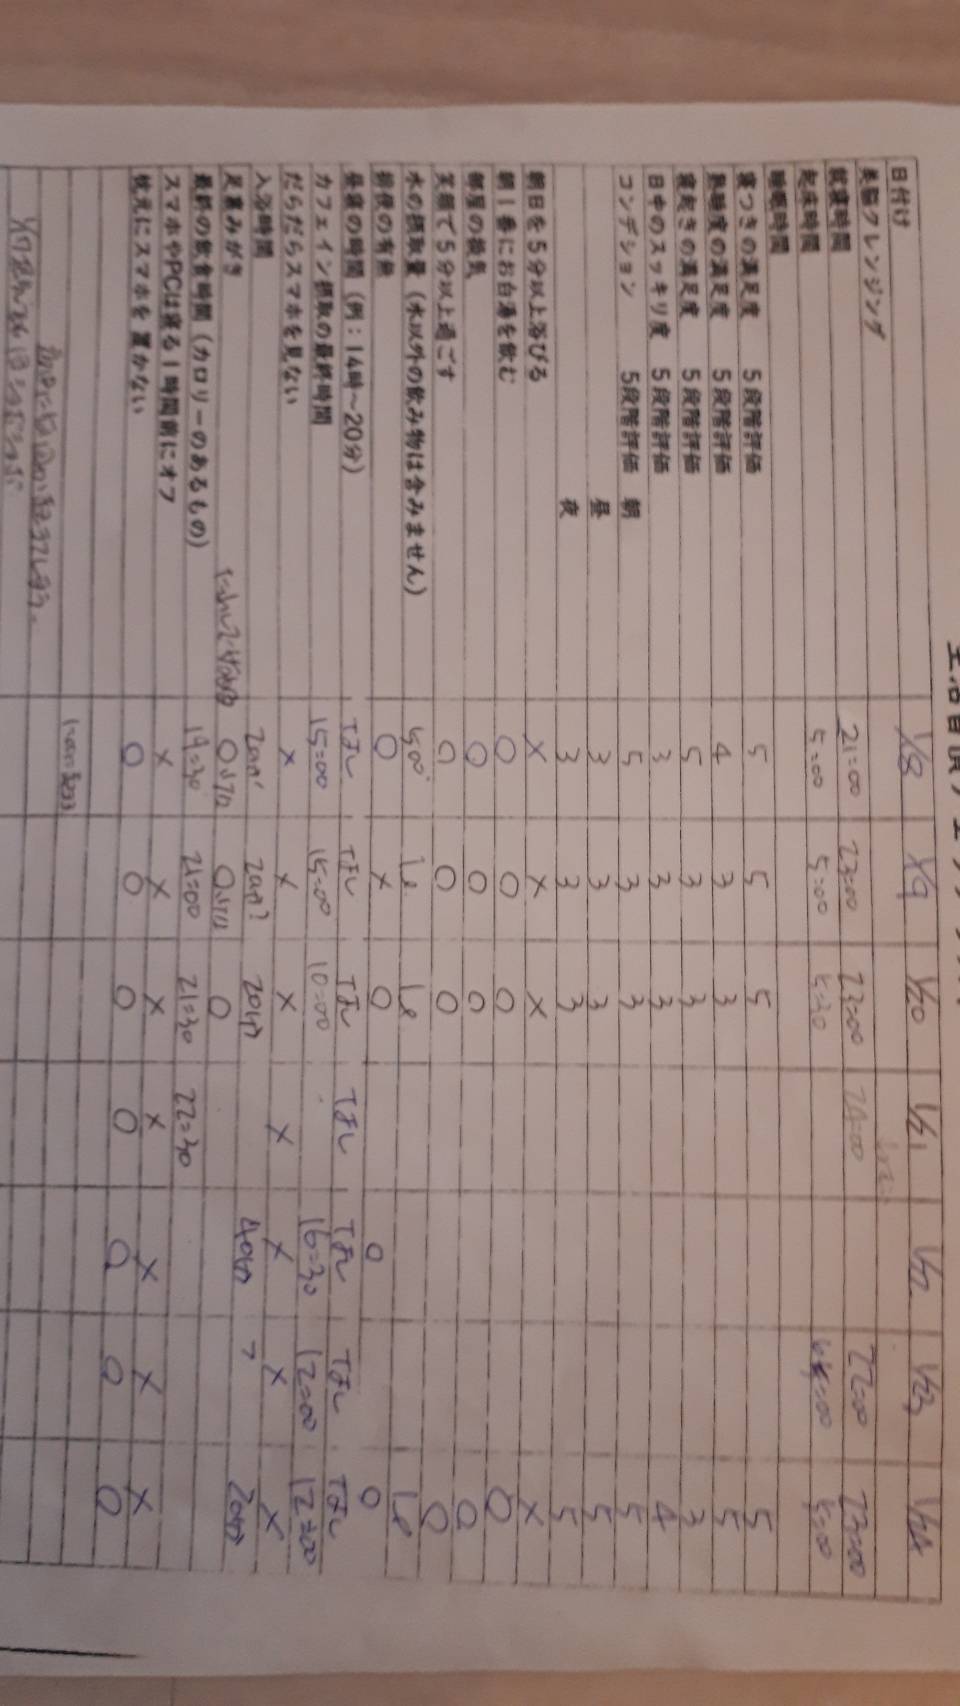 生活習慣チェック
日付け 1/18 1/19 1/20 1/21 1/22 1/23 1/24
美脳クレンジング
就寝時間 21:00 23:00 23:00 22:00 23:00
起床時間 5:00 5:00 5:30 5:00
睡眠時間
寝つきの満足度 5段階評価 5 5 5 5
熟睡度の満足度 5段階評価 4 3 3 5
寝起きの満足度 5段階評価 5 3 3 3
日中のスッキリ度 5段階評価 3 3 3 4
コンデション 5段階評価 朝 5 3 3 5
昼 3 3 3 5
夜 3 3 3 5
朝日を5分以上浴びる × × × ×
朝1番にお白湯を飲む ○ ○ ○ ○
部屋の換気 ○ ○ ○ ○
笑顔で5分以上過ごす ○ ○ ○ ○
水の摂取量（水以外の飲み物は含みません） 500 1ℓ 1ℓ 1ℓ
排便の有無 ○ × ○ ○ ○
昼寝の時間（例：14時～20分） なし なし なし なし なし なし なし
カフェイン摂取の最終時間 15:00 15:00 10:00 16:30 12:00 12:00
だらだらスマホを見ない × × × × × × ×
入浴時間 20分 20分 20分 40分 20分
足裏みがき ○ ○ ○
最終の飲食時間（カロリーのあるもの） 19:30 21:00 21:30 22:30
スマホやPCは寝る1時間前にオフ × × × × × × ×
枕元にスマホを置かない ○ ○ ○ ○ ○ ○ ○